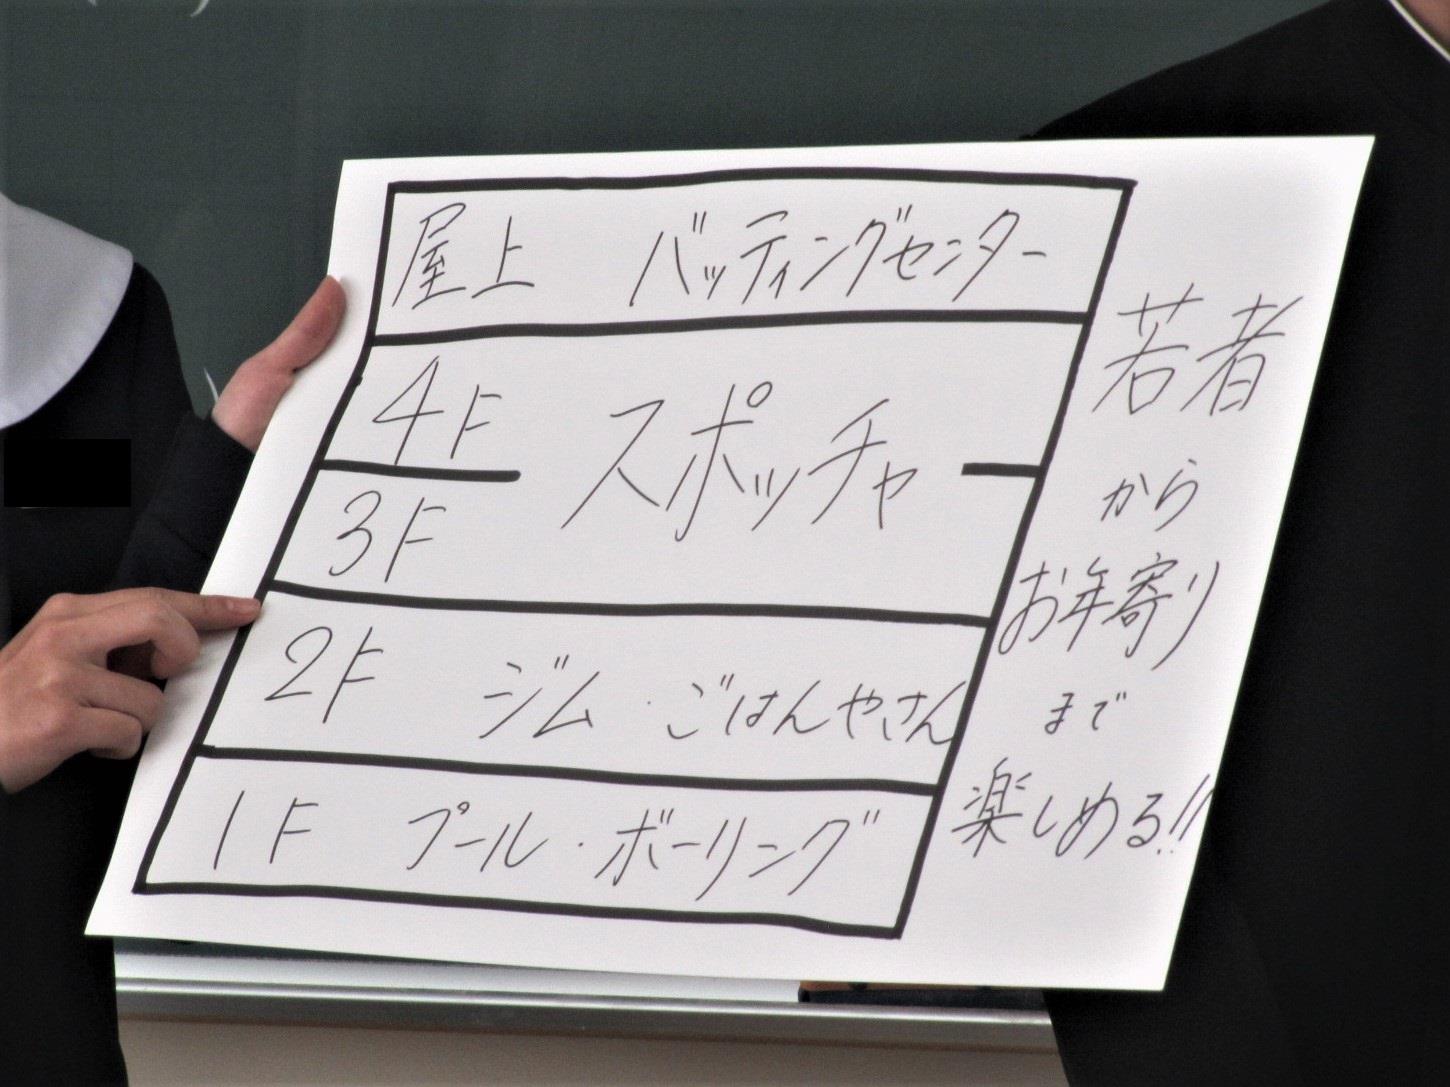 屋上 バッティングセンター
4F
スポッチャ
3F
2F ジム・ごはんやさん
1F プール・ボーリング
若者
から
お年寄り
まで
楽しめる!!